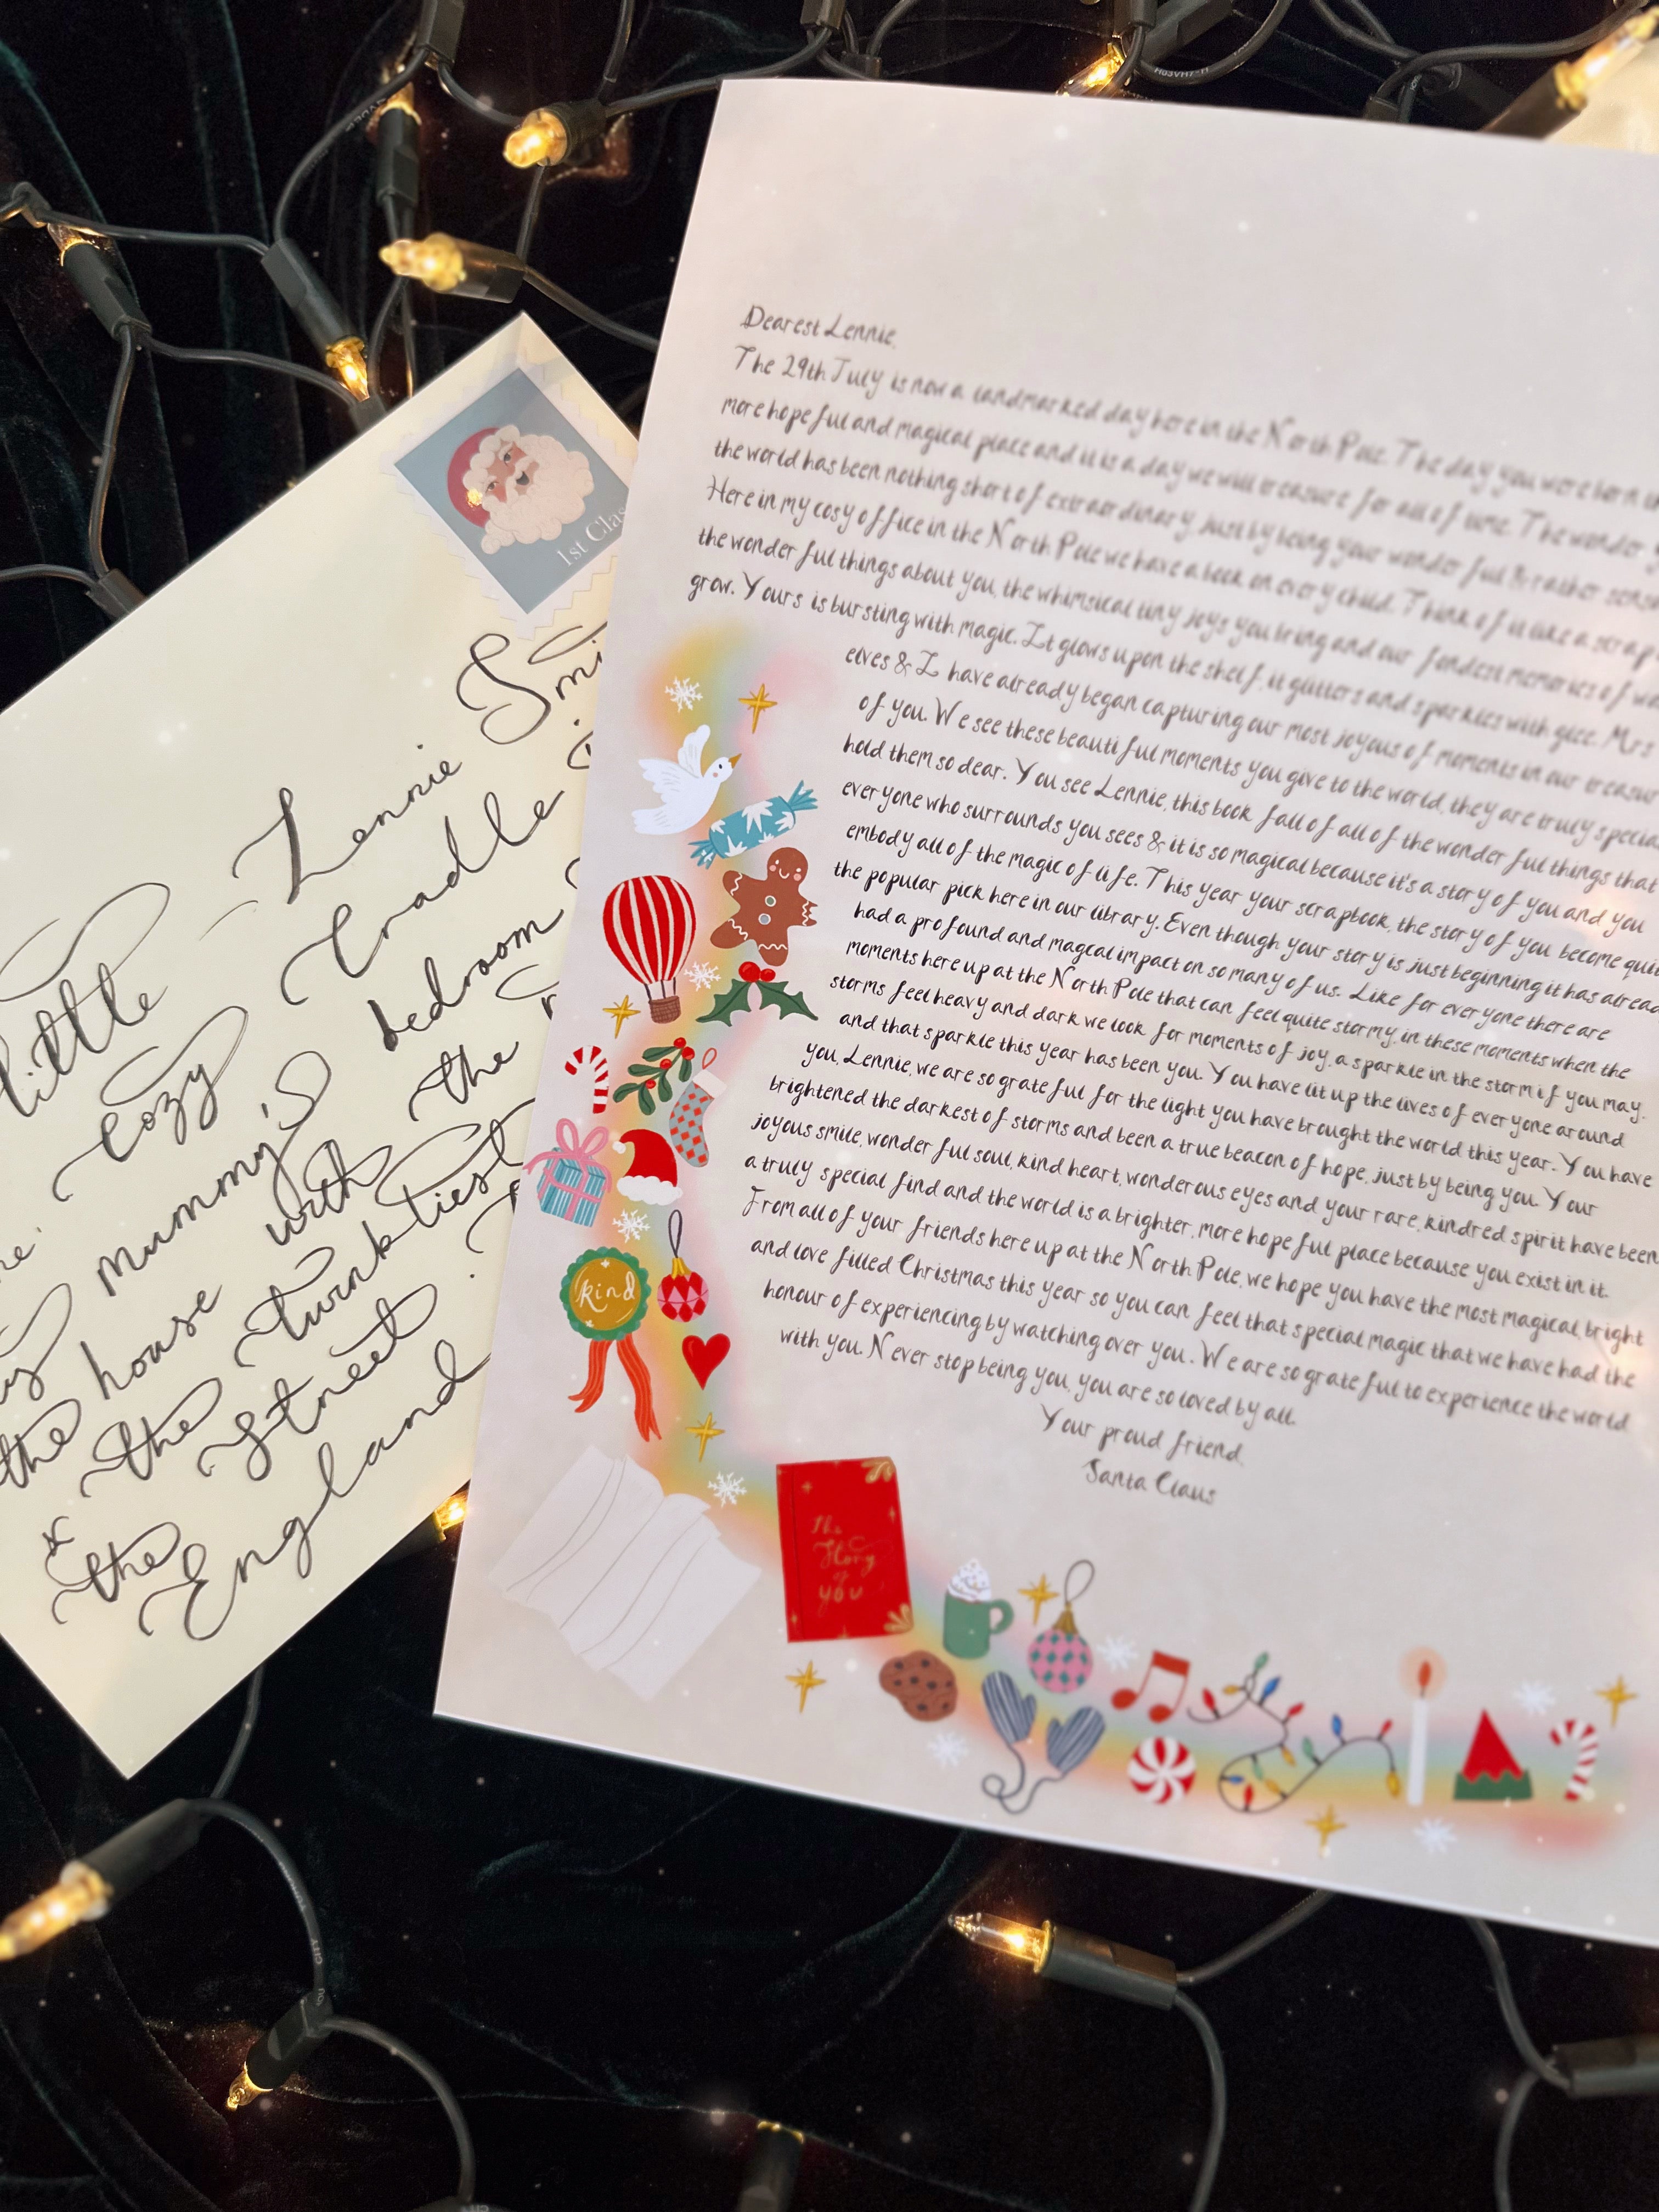 Dearest Lennie,
The 29th July is now a landmarked day here in the North Pole. The day you were born
more hopeful and magical place and it is a day we will treasure for all of time. The wonder
the world has been nothing short of extraordinary, just by being your wonderful & rather
Here in my cosy office in the North Pole we have a book on every child. Think of it like a scrap
the wonderful things about you, the whimsical tiny joys you bring and our fondest memories of
grow. Yours is bursting with magic. It glows upon the shelf, it glitters and sparkles with glee. Mrs
elves & I have already began capturing our most joyous of moments in our
of you. We see these beautiful moments you give to the world, they are truly special
hold them so dear. You see Lennie, this book fall of all of the wonderful things that
everyone who surrounds you sees & it is so magical because it's a story of you and you
embody all of the magic of life. This year your scrapbook, the story of you become
the popular pick here in our library. Even though your story is just beginning it has
had a profound and magcal impact on so many of us. Like for everyone there are
moments here up at the North Pole that can feel quite stormy, in these moments when the
storms feel heavy and dark we look for moments of joy, a sparkle in the storm if you may.
and that sparkle this year has been you. You have lit up the lives of everyone around
you, Lennie, we are so grateful for the light you have brought the world this year. You have
brightened the darkest of storms and been a true beacon of hope, just by being you. Your
joyous smile, wonderful soul, kind heart, wonderous eyes and your rare, kindred spirit have been
a truly special find and the world is a brighter, more hopeful place because you exist in it.
From all of your friends here up at the North Pole, we hope you have the most magical, bright
and love filled Christmas this year so you can feel that special magic that we have had the
honour of experiencing by watching over you. We are so grateful to experience the world
with you. Never stop being you, you are so loved by all.
Your proud friend,
Santa Claus
kind
The
Story
of
you
1st
little - Lennie
Cozy Cradle
mummy's bedroom
the house with the
the twinkliest
Street
the
England